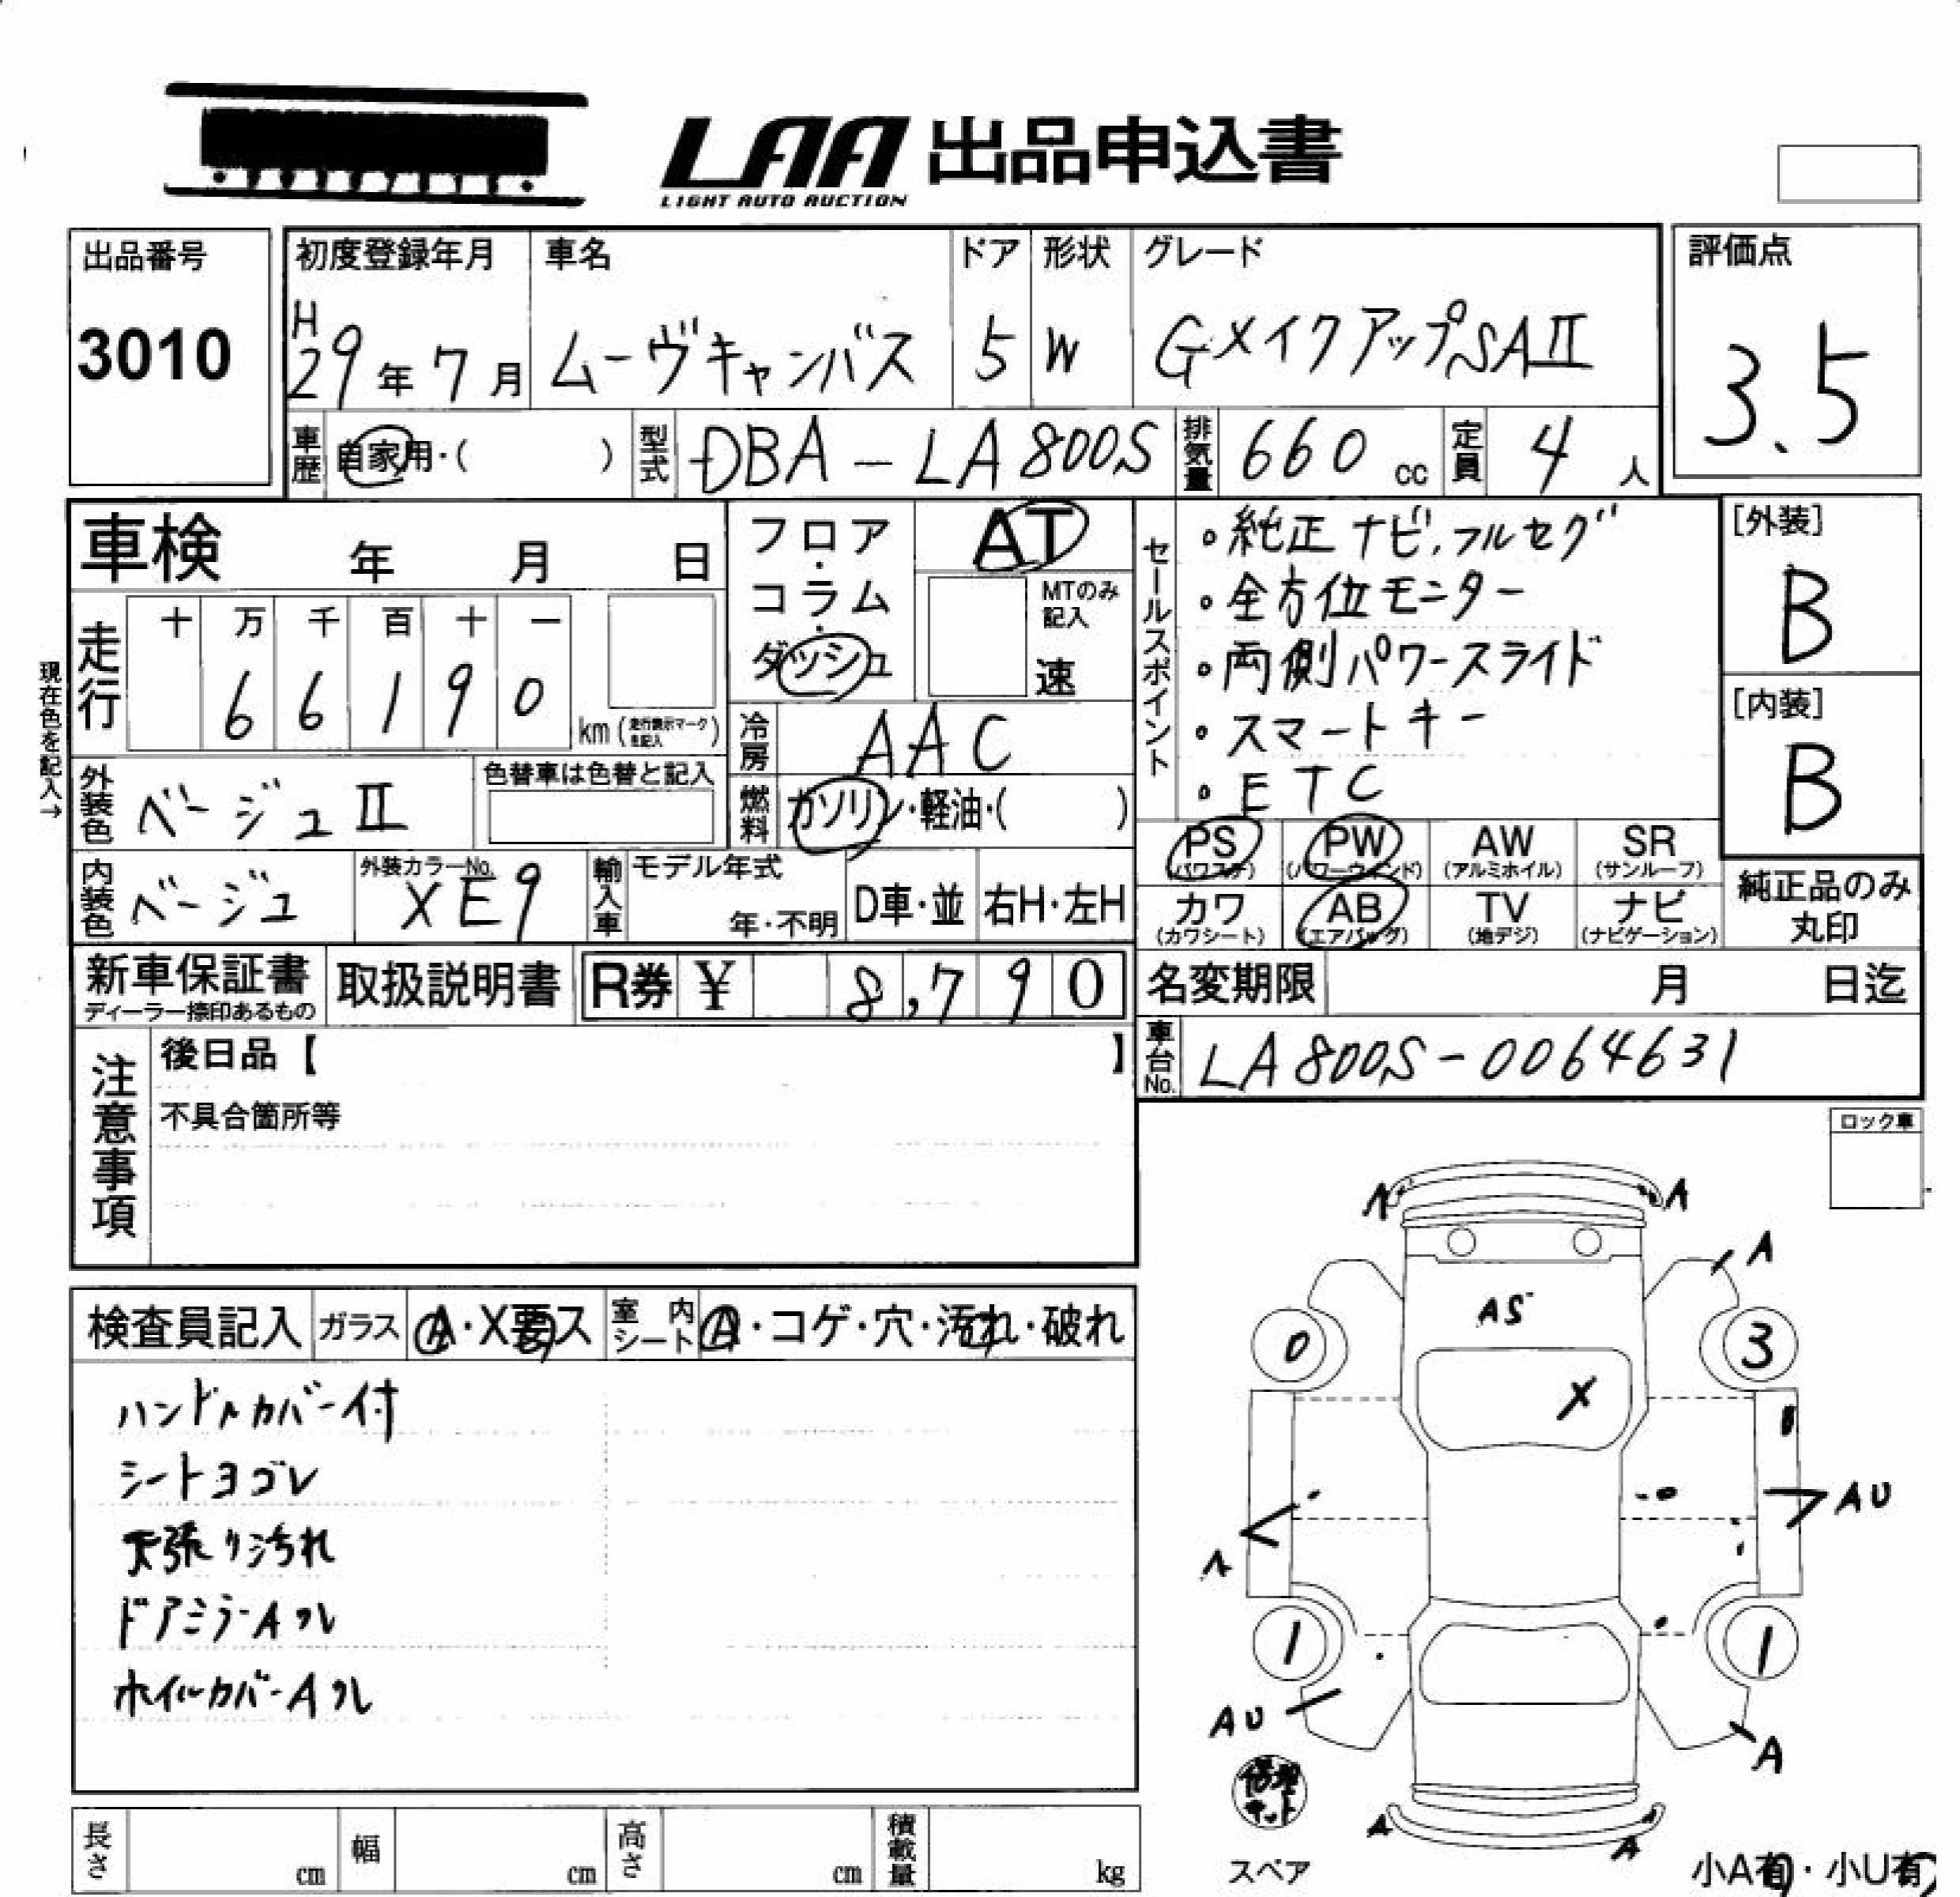 LAA 出品申込書
LIGHT AUTO AUCTION
出品番号
3010
初度登録年月
H
29年7月
車名
ムーヴキャンバス
ドア
5
形状
W
グレード
GメイクアップSAII
評価点
3.5
車歴 自家用・( )
型式 DBA-LA800S
排気量 660 cc
定員 4 人
車検 年 月 日
フロア・コラム・ダッシュ
AT
MTのみ記入
速
セールスポイント
・純正ナビ,フルセグ
・全方位モニター
・両側パワースライド
・スマートキー
・ETC
[外装]
B
[内装]
B
現在色を記入→
走行
十 万 千 百 十 一
6 6 1 9 0
km (走行表示マークを記入)
冷房 AAC
外装色 ベージュII
色替車は色替と記入
燃料 ガソリン・軽油・( )
内装色 ベージュ
外装カラーNo.
XE9
輸入車
モデル年式
年・不明
D車・並
右H・左H
PS (パワステ)
PW (パワーウィンド)
AW (アルミホイル)
SR (サンルーフ)
カワ (カワシート)
AB (エアバッグ)
TV (地デジ)
ナビ (ナビゲーション)
純正品のみ丸印
新車保証書
ディーラー捺印あるもの
取扱説明書
R券 ¥ 8,790
名変期限 月 日迄
車台No. LA800S-0064631
注意事項
後日品【 】
不具合箇所等
ロック車
検査員記入
ガラス A・X要ス
室内シート A・コゲ・穴・汚れ・破れ
ハンドルカバー付
シートヨゴレ
天張り汚れ
ドアミラーAクレ
ホイルカバーAクレ
A
A
A
AS
0
3
X
AU
A
1
1
AU
A
修理キット
A
A
スペア
小A有・小U有
長さ cm
幅 cm
高さ cm
積載量 kg